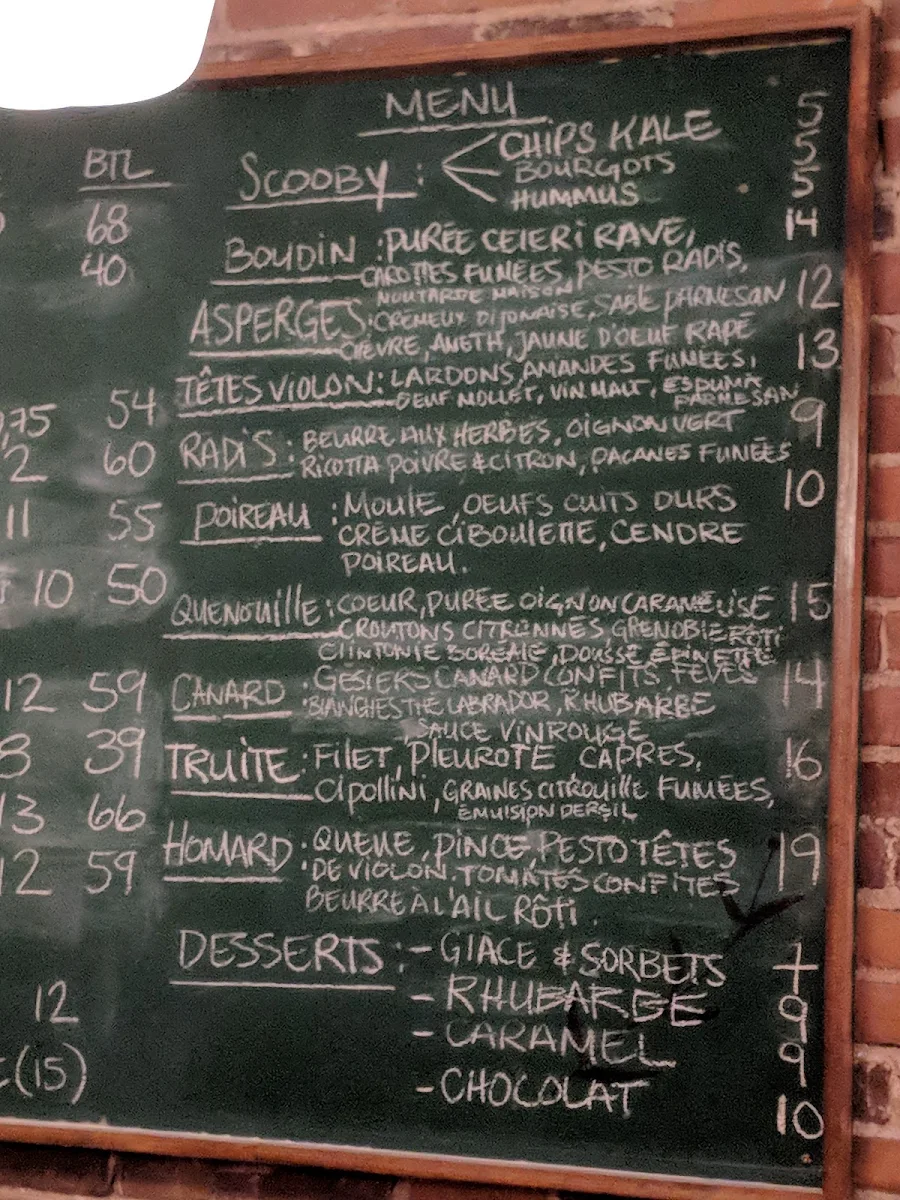 MENU
BTL
SCOOBY : CHIPS KALE 5
BOURGOTS 5
HUMMUS 5
68
40
BOUDIN : PURÉE CELERI RAVE, 14
CAROTTES FUMÉES, PESTO RADIS,
MOUTARDE MAISON
ASPERGES : CRÉMEUX DIJONAISE, SABLÉ PARMESAN 12
CHÈVRE, ANETH, JAUNE D'OEUF RAPÉ
TÊTES VIOLON : LARDONS, AMANDES FUMÉES, 13
OEUF MOLLET, VIN MALT, ESPUMA
PARMESAN
54
RADIS : BEURRE AUX HERBES, OIGNON VERT 9
RICOTTA POIVRE & CITRON, PACANES FUMÉES
,75
2 60
POIREAU : MOULE, OEUFS CUITS DURS 10
CRÈME CIBOULETTE, CENDRE
POIREAU.
11 55
10 50
QUENOUILLE : COEUR, PURÉE OIGNON CARAMÉLISÉ 15
CROUTONS CITRONNÉS GRENOBLE RÔTI
CLINTONIE BORÉALE, POUSSE ÉPINETTE
CANARD : GÉSIERS CANARD CONFITS FÈVES 14
BLANCHES THÉ LABRADOR, RHUBARBE
SAUCE VIN ROUGE
12 59
8 39
TRUITE : FILET, PLEUROTE CAPRES, 16
CIPOLLINI, GRAINES CITROUILLE FUMÉES,
ÉMULSION PERSIL
13 66
HOMARD : QUEUE, PINCE, PESTO TÊTES 19
DE VIOLON. TOMATES CONFITES
BEURRE À L'AIL RÔTI.
12 59
DESSERTS : - GLACE & SORBETS 7
- RHUBARBE 9
- CARAMEL 9
- CHOCOLAT 10
12
(15)